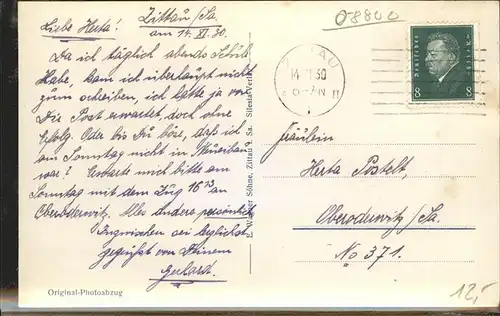 Liebe Herta!
Zittau/Sa.
am 14. XI. 30.
Da ich täglich abends Schule
habe, kam ich überhaupt nicht
zum schreiben, ich hatte ja von
Dir Post erwartet, doch ohne
Erfolg. Oder bis Du böse, daß ich
am Sonntag nicht in
war? Erwarte mich bitte am
Sonntag mit dem Zug 16
Oberoderwitz. Alles Andere persönlich
Inzwischen sei herzlichst
gegrüßt von Deinem
Gerhard.
Original-Photoabzug
Söhne, Zittau i. Sa.
08800
ZITTAU
14 11 30
8 8
Fräulein
Herta Postelt,
Oberoderwitz/Sa.
No 371.
12,-